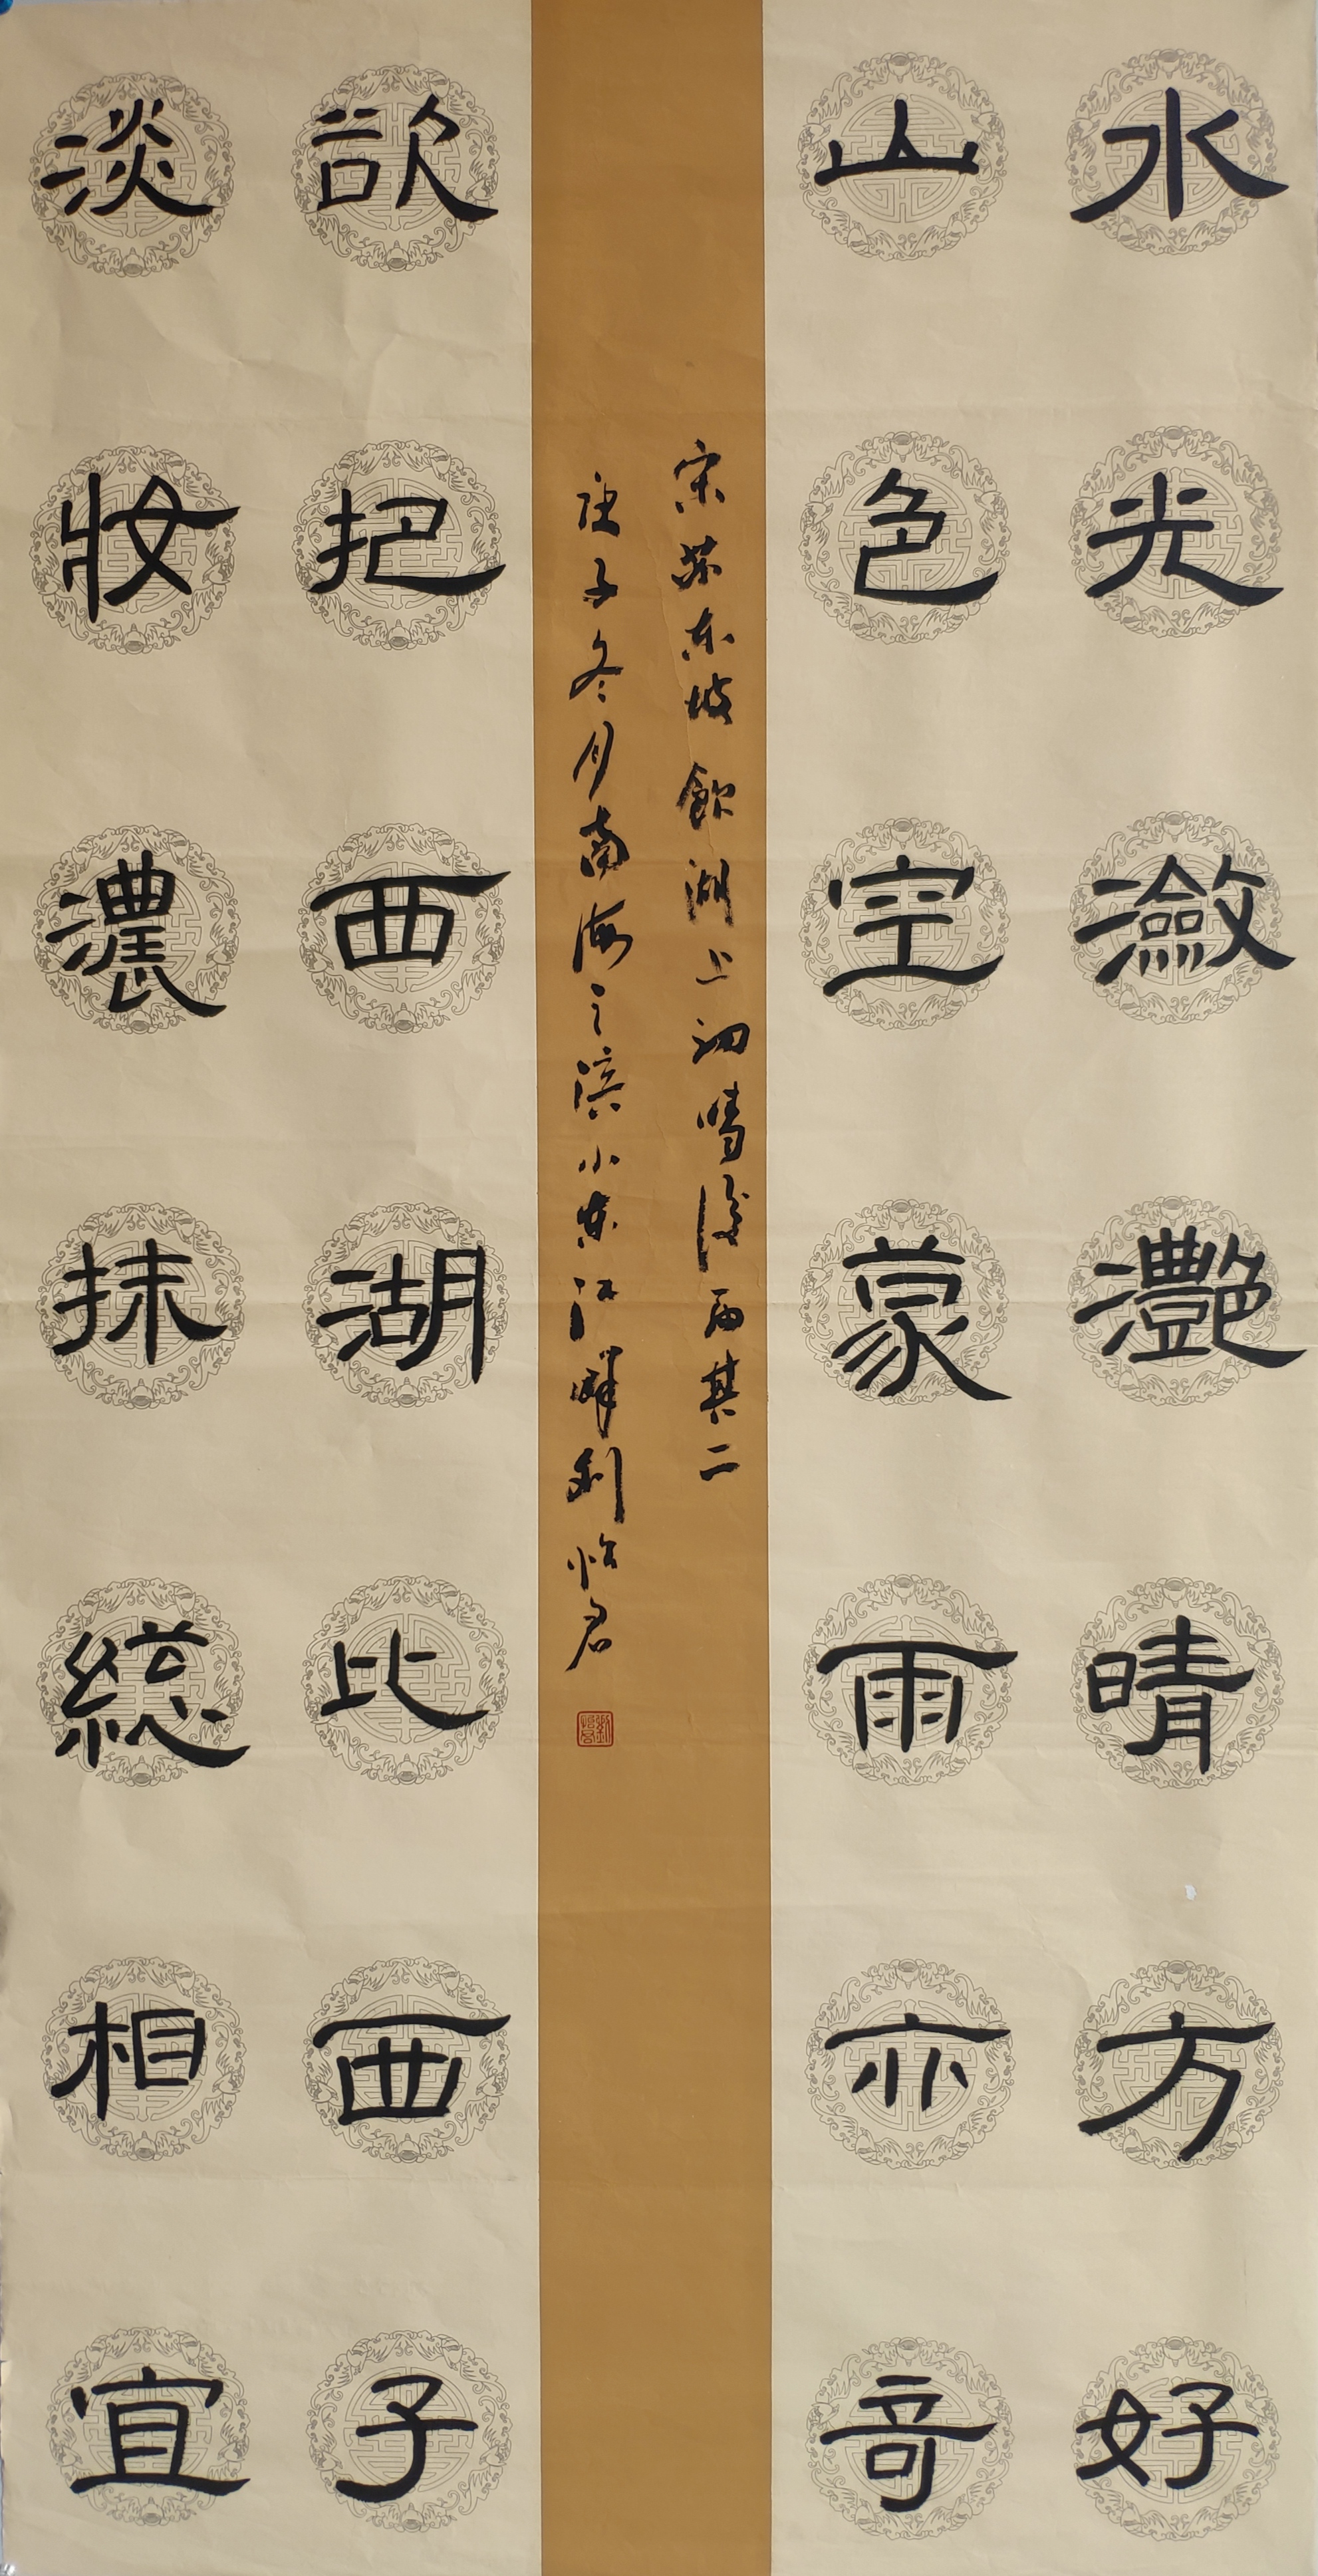 水光瀲灧晴方好
山色空蒙雨亦奇
宋苏东坡飲湖上初晴後雨其二
庚子冬月南海之滨小东江畔刘怡君
劉怡君
欲把西湖比西子
淡妝濃抹総相宜